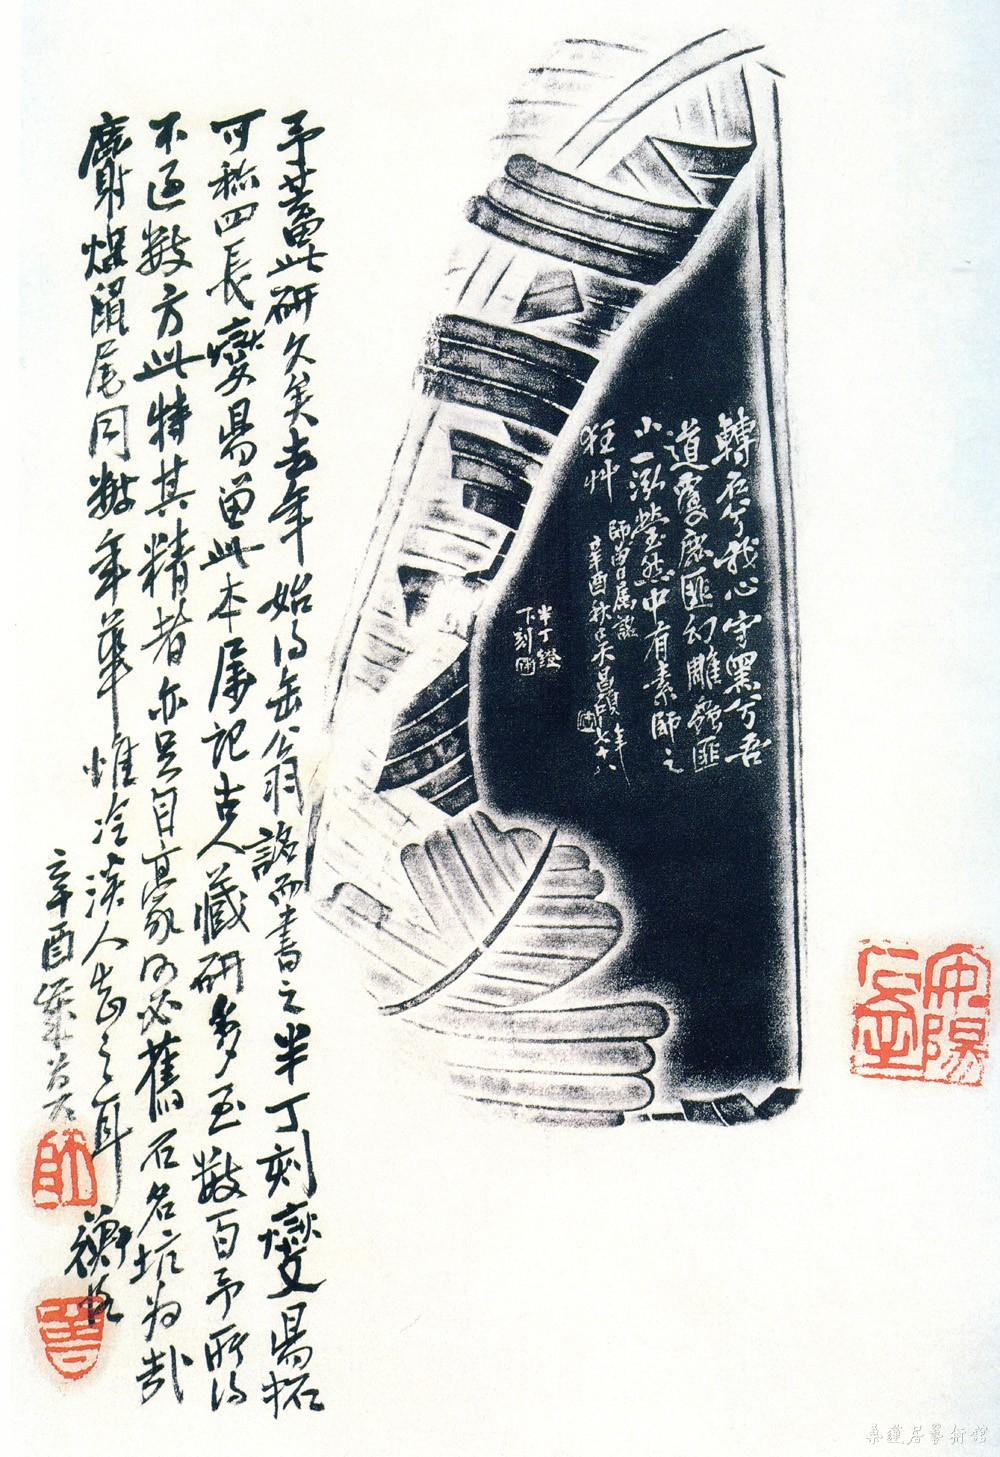 轉石兮我心守黑兮吾
道覆鹿匪幻雕蟲匪
小一泓瑩然中有素師之
狂艸
師曾屬銘
辛酉秋吳昌碩年七十八
半丁鐙
下刻
予蓄此研久矣去年始得缶翁銘而書之半丁刻燮昜拓
可稱四長燮昜留此本屬記古人藏研多至數百予所得
不過數方此特其精者亦足自豪何必舊石名坑为哉
麝煤鼠尾同年華惟冷淡人知之耳 衡恪
辛酉
師
曾
安陽
石室
桑蓮居藝術館